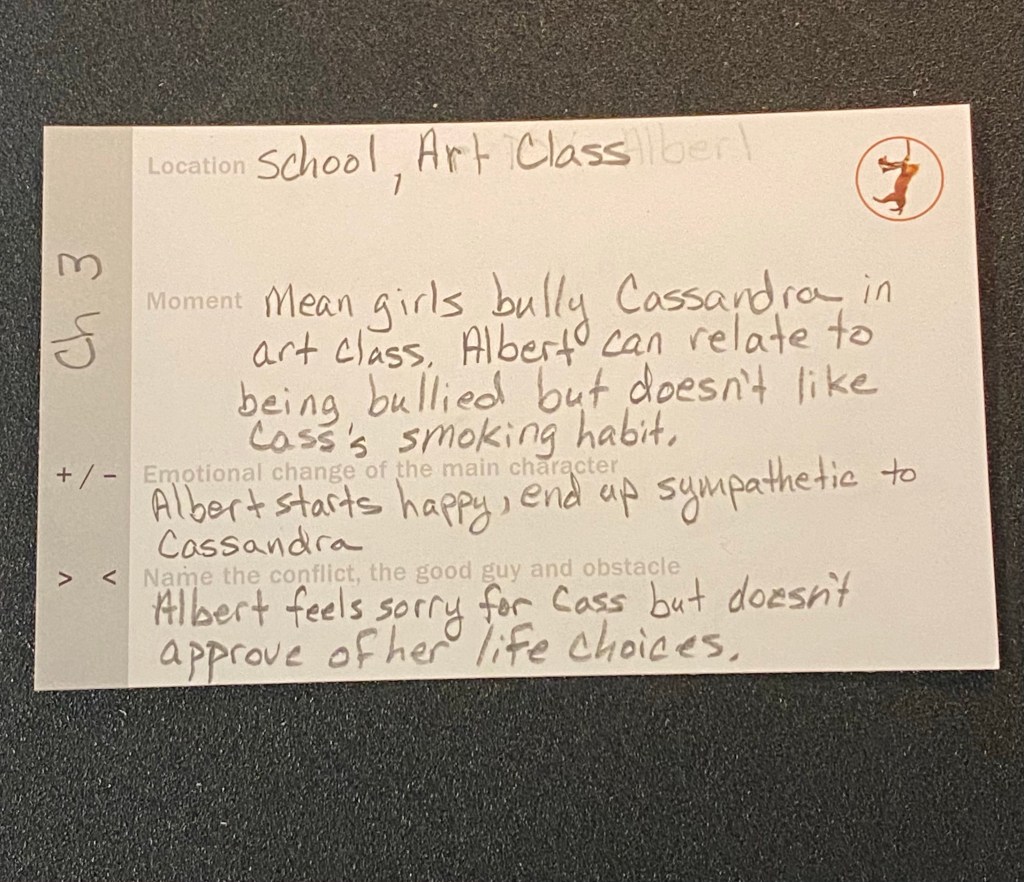 Ch 3
Location School, Art Class
Moment Mean girls bully Cassandra in
art class. Albert can relate to
being bullied but doesn't like
Cass's smoking habit.
+ / - Emotional change of the main character
Albert starts happy, end up sympathetic to
Cassandra
> < Name the conflict, the good guy and obstacle
Albert feels sorry for Cass but doesn't
approve of her life choices.